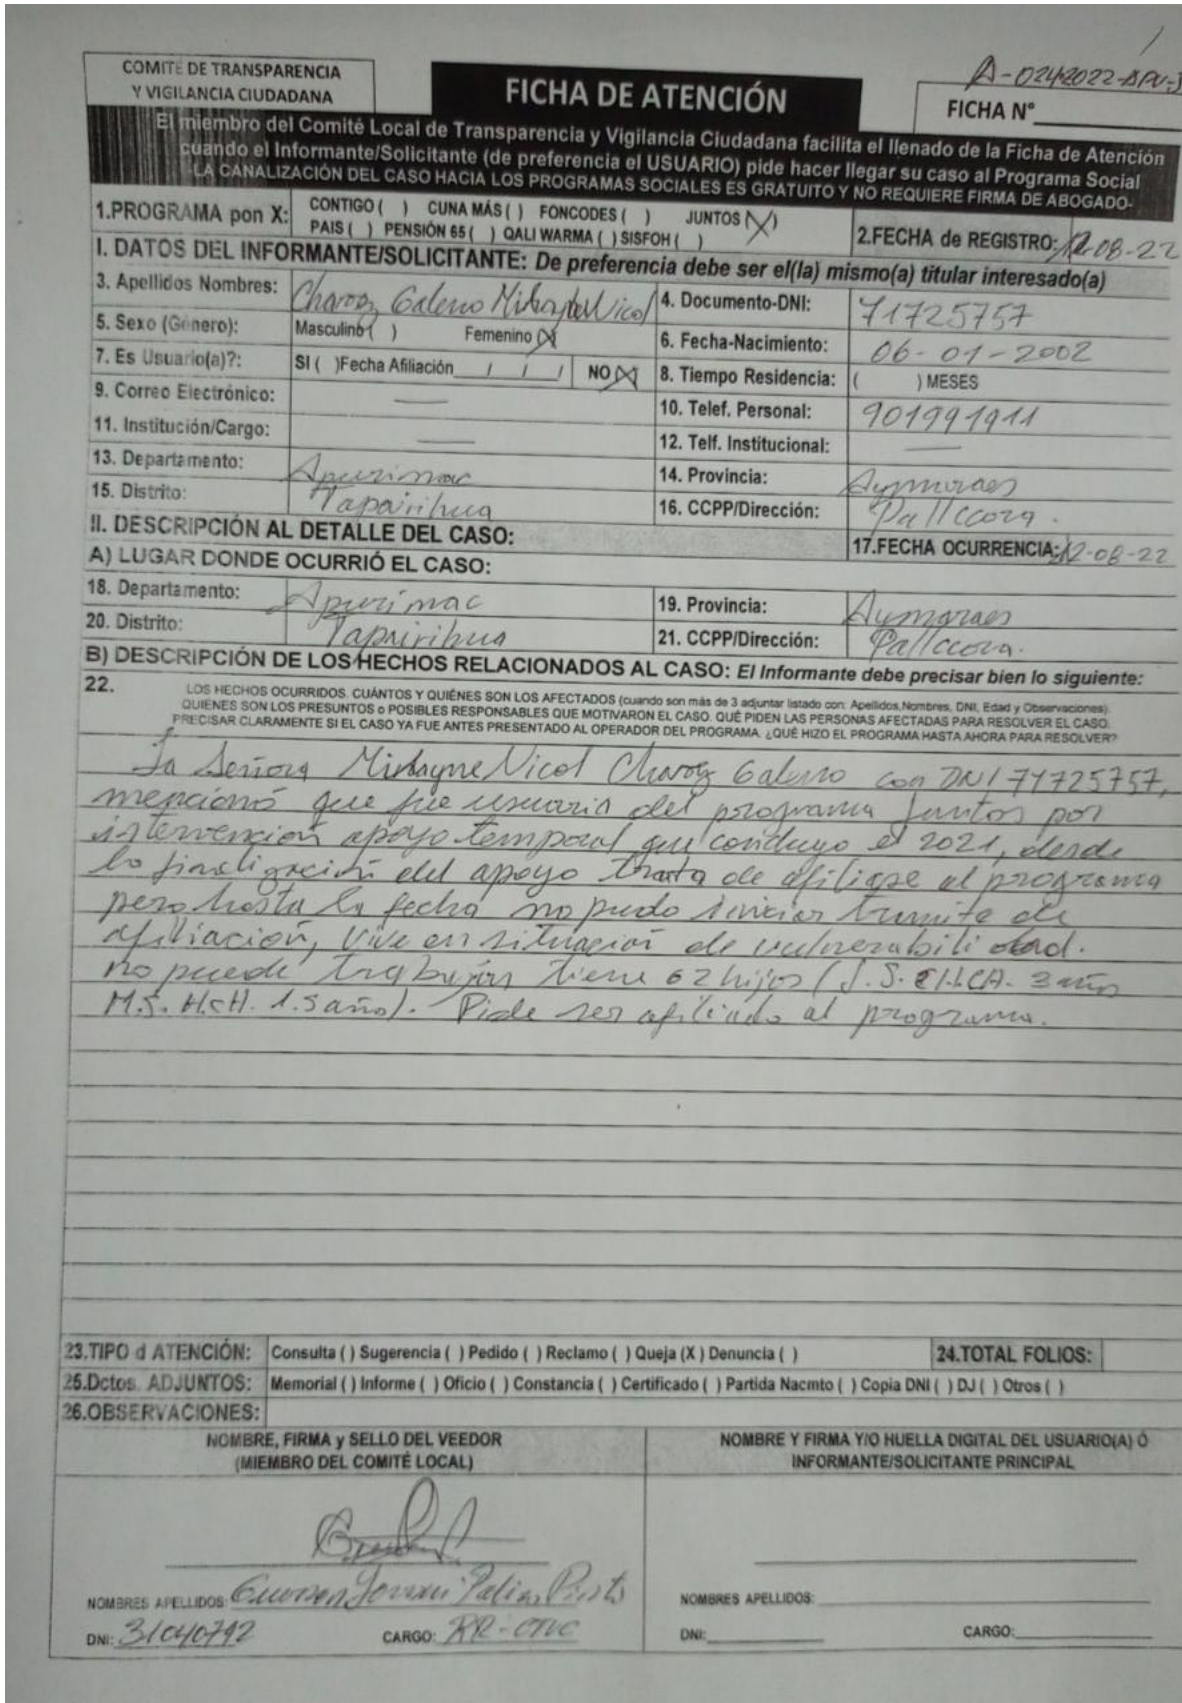 COMITÉ DE TRANSPARENCIA
Y VIGILANCIA CIUDADANA
FICHA DE ATENCIÓN
A-024-2022-APU-J
FICHA N°
El miembro del Comité Local de Transparencia y Vigilancia Ciudadana facilita el llenado de la Ficha de Atención
cuando el Informante/Solicitante (de preferencia el USUARIO) pide hacer llegar su caso al Programa Social
-LA CANALIZACIÓN DEL CASO HACIA LOS PROGRAMAS SOCIALES ES GRATUITO Y NO REQUIERE FIRMA DE ABOGADO-
1.PROGRAMA pon X: CONTIGO ( ) CUNA MÁS ( ) FONCODES ( ) JUNTOS (X)
PAIS ( ) PENSIÓN 65 ( ) QALI WARMA ( ) SISFOH ( )
2.FECHA de REGISTRO: 12-08-22
I. DATOS DEL INFORMANTE/SOLICITANTE: De preferencia debe ser el(la) mismo(a) titular interesado(a)
3. Apellidos Nombres: Galeno Nicol 4. Documento-DNI: 71725757
5. Sexo (Género): Masculino ( ) Femenino (X) 6. Fecha-Nacimiento: 06-01-2002
7. Es Usuario(a)?: SI ( ) Fecha Afiliación / / / NO (X) 8. Tiempo Residencia: ( ) MESES
9. Correo Electrónico: — 10. Telef. Personal: 901991911
11. Institución/Cargo: — 12. Telf. Institucional: —
13. Departamento: Apurimac 14. Provincia: Aymaraes
15. Distrito: Tapairihua 16. CCPP/Dirección: Pallccora.
II. DESCRIPCIÓN AL DETALLE DEL CASO: 17.FECHA OCURRENCIA: 12-08-22
A) LUGAR DONDE OCURRIÓ EL CASO:
18. Departamento: Apurimac 19. Provincia: Aymaraes
20. Distrito: Tapairihua 21. CCPP/Dirección: Pallccora.
B) DESCRIPCIÓN DE LOS HECHOS RELACIONADOS AL CASO: El Informante debe precisar bien lo siguiente:
22. LOS HECHOS OCURRIDOS. CUÁNTOS Y QUIÉNES SON LOS AFECTADOS (cuando son más de 3 adjuntar listado con: Apellidos,Nombres, DNI, Edad y Observaciones).
QUIENES SON LOS PRESUNTOS o POSIBLES RESPONSABLES QUE MOTIVARON EL CASO. QUÉ PIDEN LAS PERSONAS AFECTADAS PARA RESOLVER EL CASO.
PRECISAR CLARAMENTE SI EL CASO YA FUE ANTES PRESENTADO AL OPERADOR DEL PROGRAMA. ¿QUÉ HIZO EL PROGRAMA HASTA AHORA PARA RESOLVER?
La Señora Nicol Galeno con DNI 71725757,
mencionó que fue usuaria del programa Juntos por
intervención apoyo temporal que concluyo el 2021, desde
la finalización del apoyo trata de afiliarse al programa
pero hasta la fecha no pudo iniciar tramite de
afiliación, vive en situación de vulnerabilidad.
no puede trabajar tiene 02 hijos (J.S. 3 años
M.S. H.CH. 1.5 año). Pide ser afiliado al programa.
23.TIPO d ATENCIÓN: Consulta ( ) Sugerencia ( ) Pedido ( ) Reclamo ( ) Queja (X) Denuncia ( ) 24.TOTAL FOLIOS:
25.Dctos. ADJUNTOS: Memorial ( ) Informe ( ) Oficio ( ) Constancia ( ) Certificado ( ) Partida Nacmto ( ) Copia DNI ( ) DJ ( ) Otros ( )
26.OBSERVACIONES:
NOMBRE, FIRMA y SELLO DEL VEEDOR
(MIEMBRO DEL COMITÉ LOCAL)
NOMBRE Y FIRMA Y/O HUELLA DIGITAL DEL USUARIO(A) Ó
INFORMANTE/SOLICITANTE PRINCIPAL
NOMBRES APELLIDOS:
DNI: 31040792 CARGO: RR-CTVC
NOMBRES APELLIDOS:
DNI: CARGO: